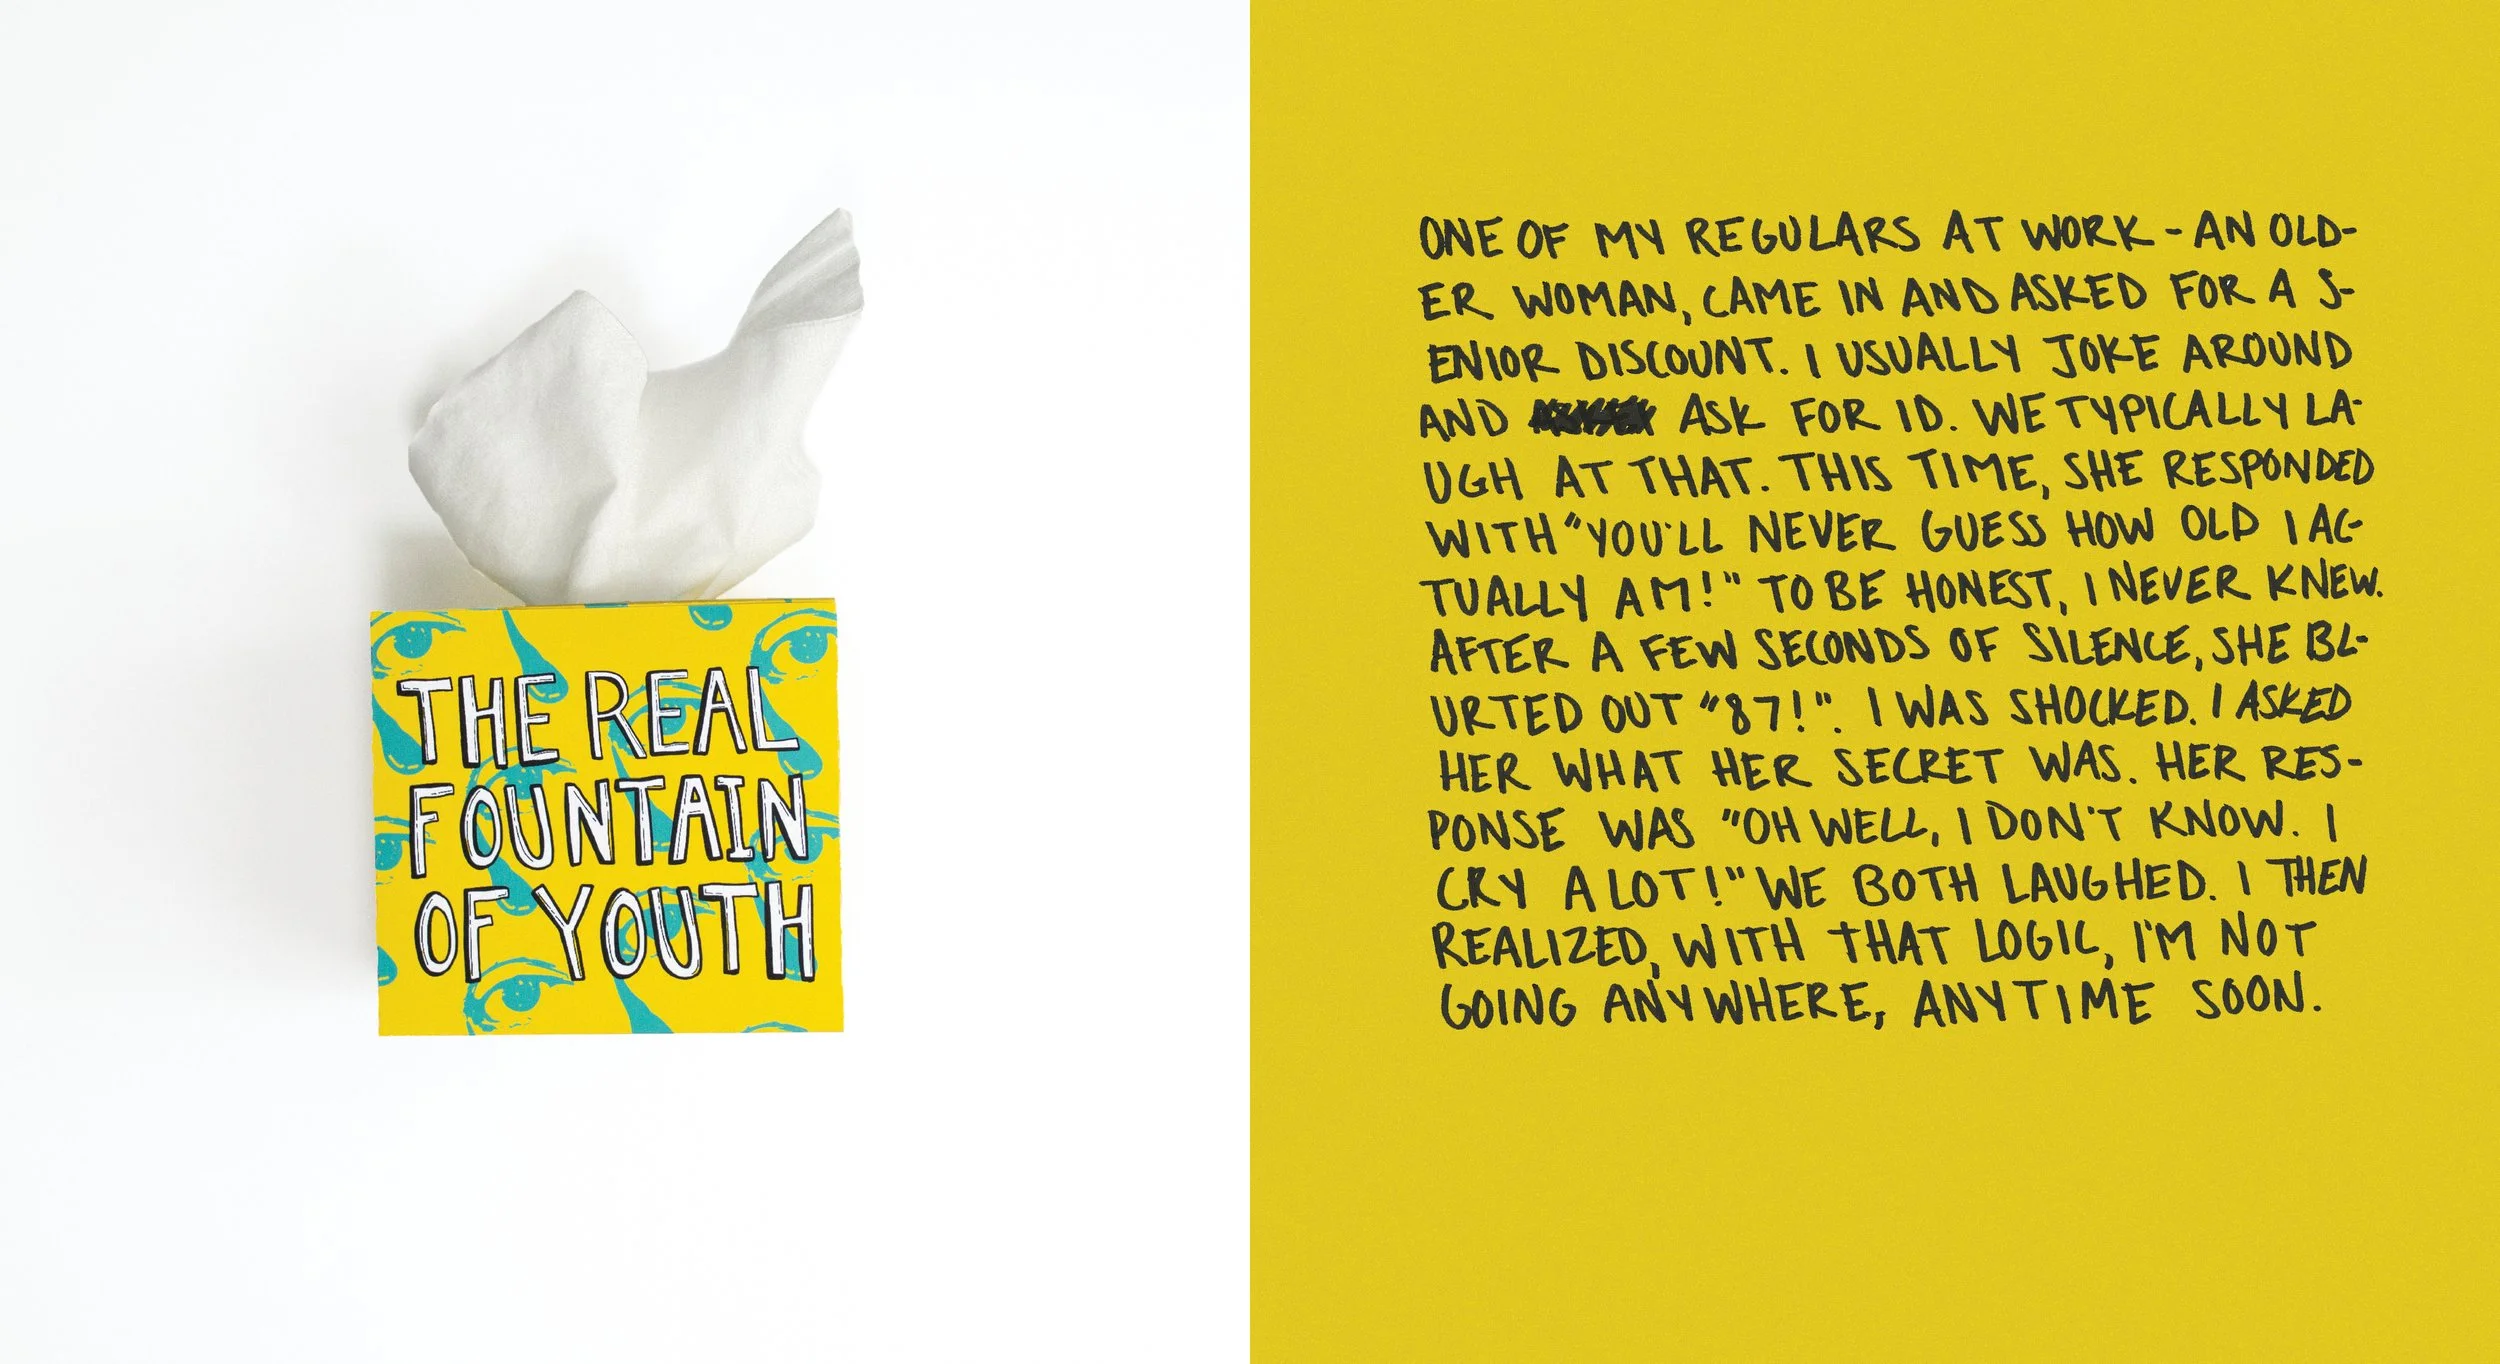 THE REAL
FOUNTAIN
OF YOUTH
ONE OF MY REGULARS AT WORK - AN OLD-
ER WOMAN, CAME IN AND ASKED FOR A S-
ENIOR DISCOUNT. I USUALLY JOKE AROUND
AND ASK FOR ID. WE TYPICALLY LA-
UGH AT THAT. THIS TIME, SHE RESPONDED
WITH "YOU'LL NEVER GUESS HOW OLD I AC-
TUALLY AM!" TO BE HONEST, I NEVER KNEW.
AFTER A FEW SECONDS OF SILENCE, SHE BL-
URTED OUT "87!". I WAS SHOCKED. I ASKED
HER WHAT HER SECRET WAS. HER RES-
PONSE WAS "OH WELL, I DON'T KNOW. I
CRY A LOT!" WE BOTH LAUGHED. I THEN
REALIZED, WITH THAT LOGIC, I'M NOT
GOING ANYWHERE, ANYTIME SOON.